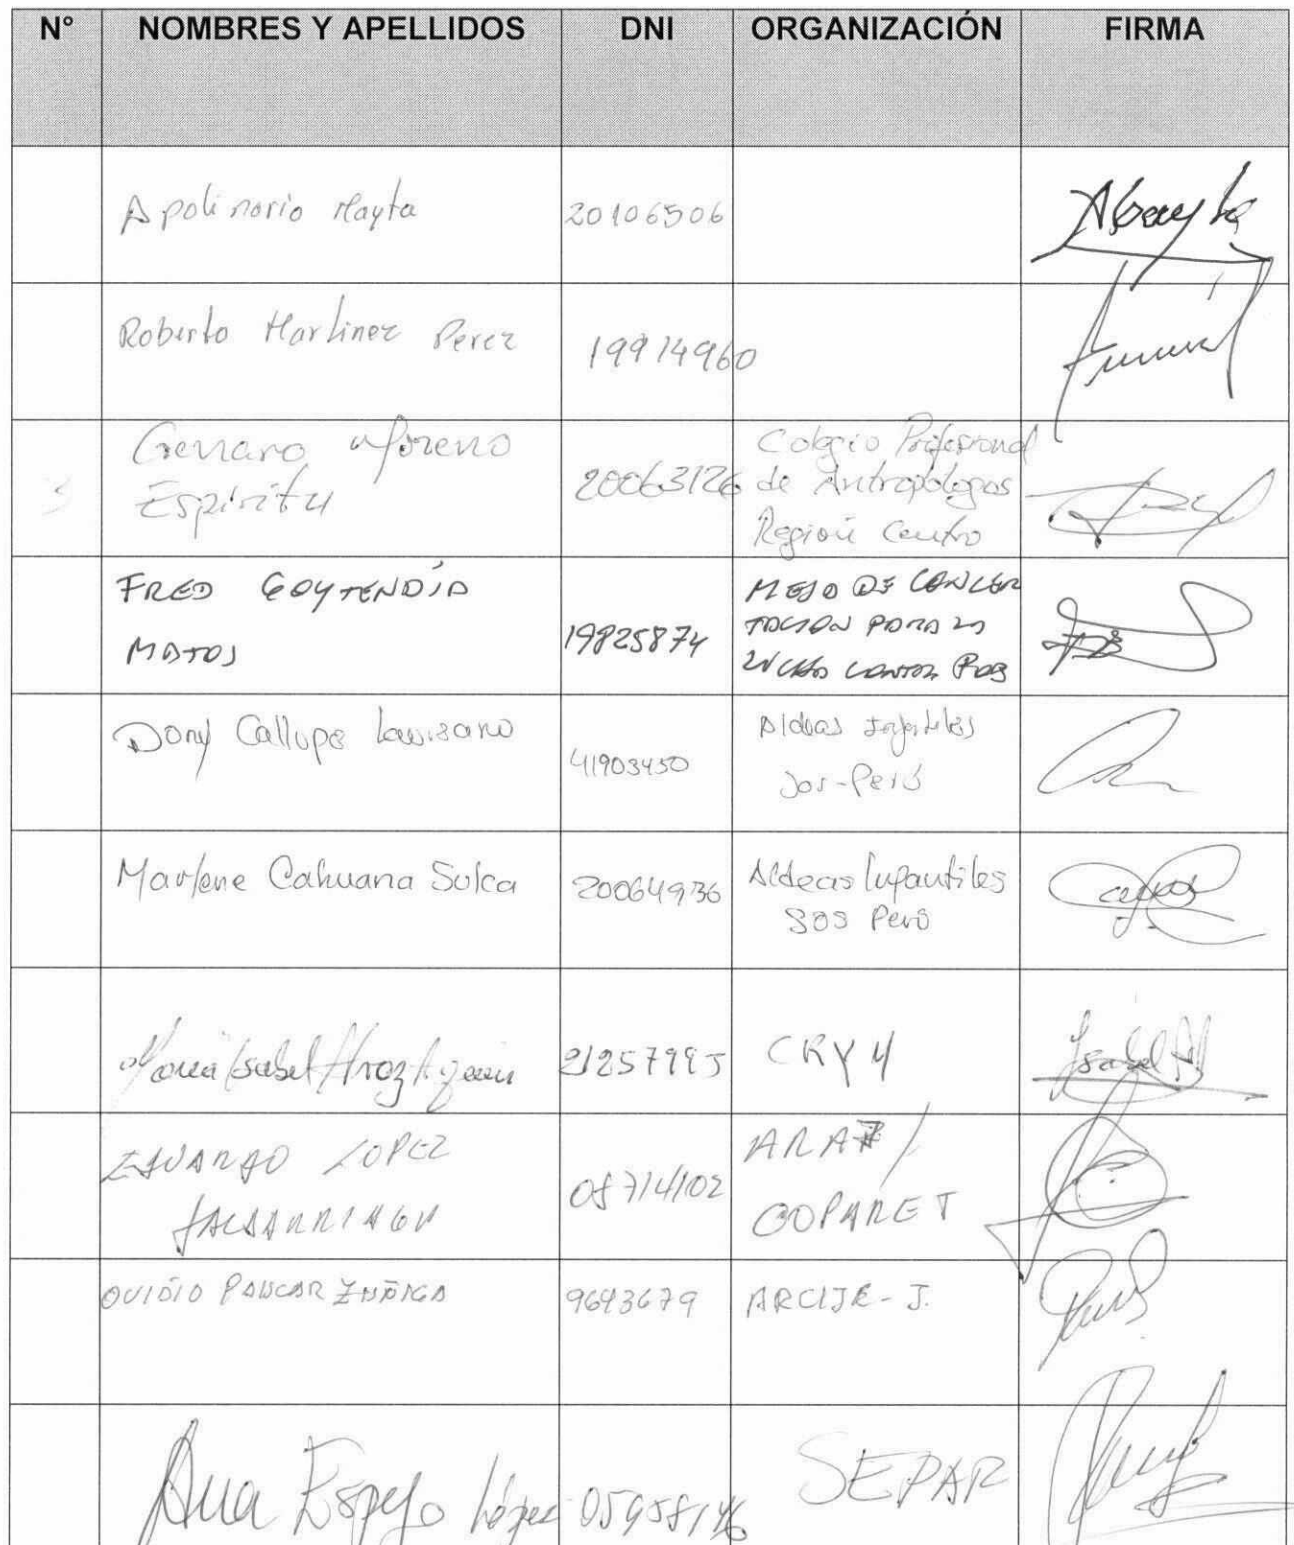 N° NOMBRES Y APELLIDOS DNI ORGANIZACIÓN FIRMA
Apolinario Mayta 20106506
Roberto Martinez Perez 19914960
Genaro Moreno
Espiritu
20063126
Colegio Profesional
de Antropologos
Región Centro
FRED GOYTENDIA
MATOS
19825874
MESA DE CONCER
TACION PARA LA
LUCHA CONTRA POB
Dony Callupe
41903450
Aldeas Infantiles
Sos-Perú
Marlene Cahuana Sulca 20064936
Aldeas Infantiles
SOS Perú
Maria Isabel 21257995 CRY 4
Isabel
EDUARDO LOPEZ
08714102
COPARET
OVIDIO PAUCAR ZUÑIGA 9643679 ARCIJE-J.
Ana Espejo López 05958146 SEPAR